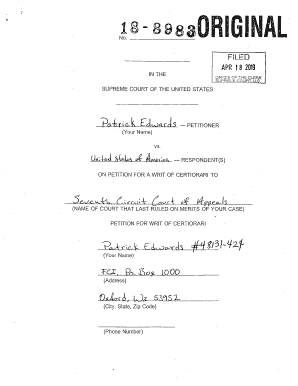 No. 18-8983 ORIGINAL
FILED
APR 18 2019
OFFICE OF THE CLERK
SUPREME COURT, U.S.
IN THE
SUPREME COURT OF THE UNITED STATES
Patrick Edwards — PETITIONER
(Your Name)
vs.
United States of America — RESPONDENT(S)
ON PETITION FOR A WRIT OF CERTIORARI TO
Seventh Circuit Court of Appeals
(NAME OF COURT THAT LAST RULED ON MERITS OF YOUR CASE)
PETITION FOR WRIT OF CERTIORARI
Patrick Edwards #48131-424
(Your Name)
FCI, Po Box 1000
(Address)
Oxford, Wi 53952
(City, State, Zip Code)
(Phone Number)